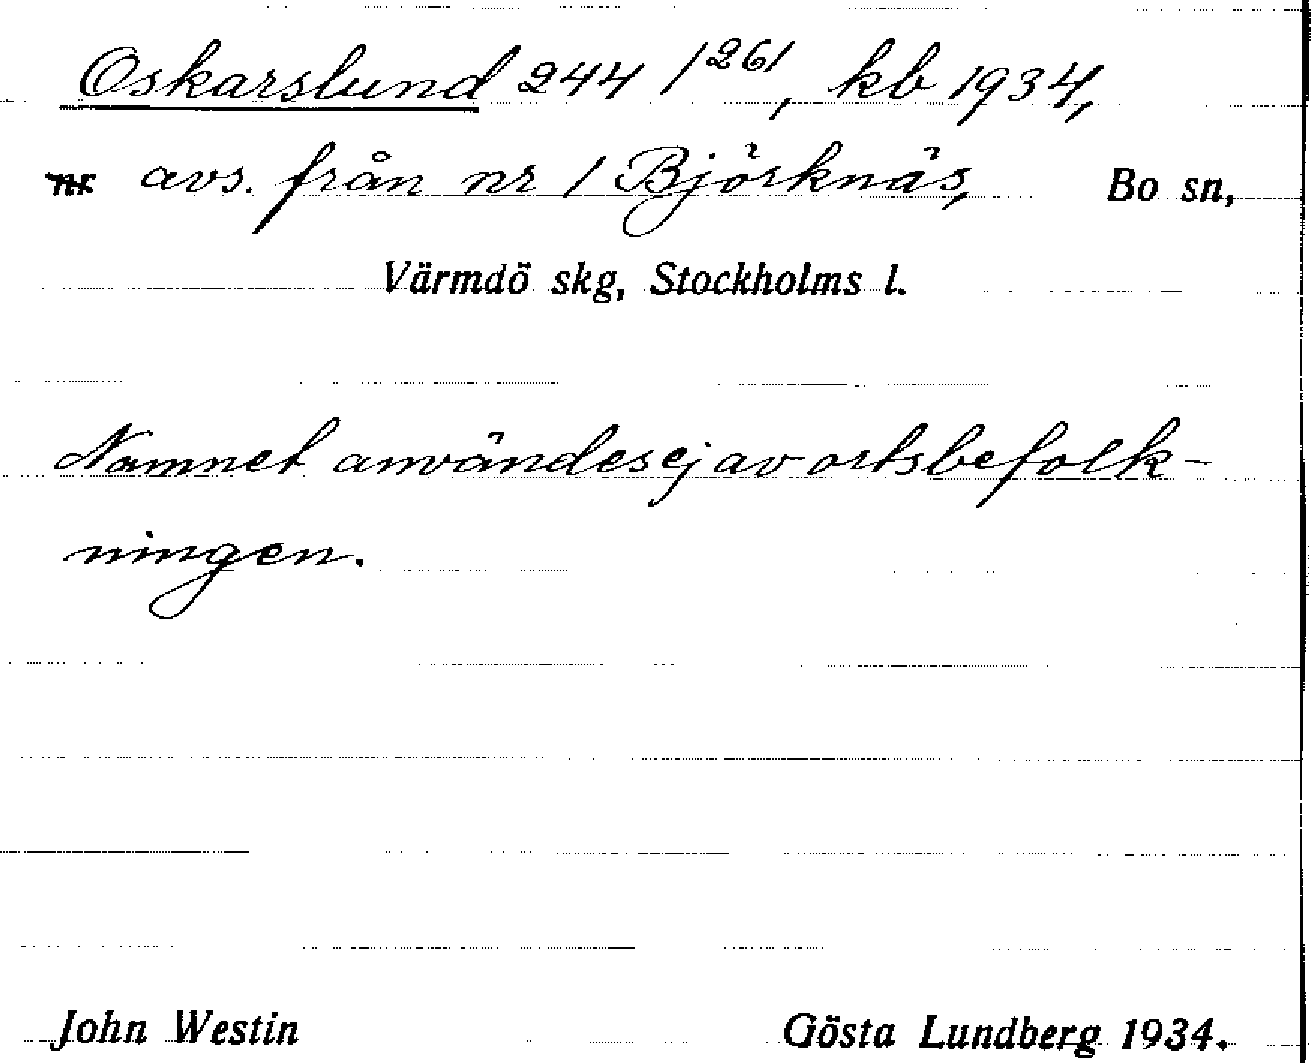 Oskarslund 244 1²⁶¹, kb 1934,
nr avs. från nr 1 Björknäs, Bo sn,
Värmdö skg, Stockholms l.
Namnet användes ej av ortsbefolk-
ningen.
John Westin Gösta Lundberg 1934.